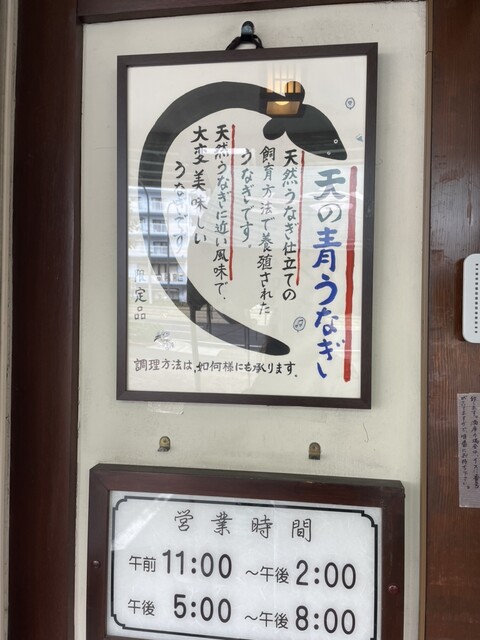 天の青うなぎ
天然うなぎ仕立ての
飼育方法で養殖された
うなぎです。
天然うなぎに近い風味で、
大変美味しい
限定品
調理方法は、如何様にも承ります。
営業時間
午前 11:00 ～午後 2:00
午後 5:00 ～午後 8:00